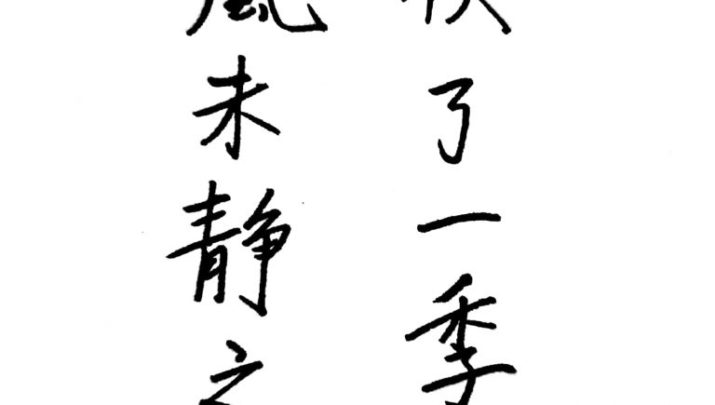 了一季
風未静之